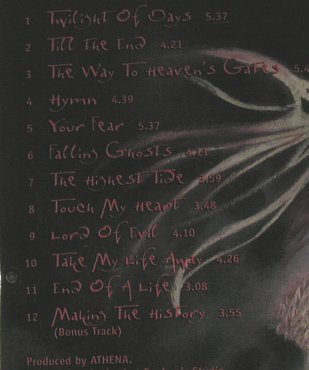 1 Twilight Of Days 5.37
2 Till The End 4.21
3 The Way To Heaven's Gates 5.4
4 Hymn 4.39
5 Your Fear 5.37
6 Falling Ghosts 4.21
7 The Highest Tide 4.39
8 Touch My Heart 3.48
9 Lord Of Evil 4.10
10 Take My Life Away 4.26
11 End Of A Life 3.08
12 Making The History 3.55
(Bonus Track)
Produced by ATHENA.